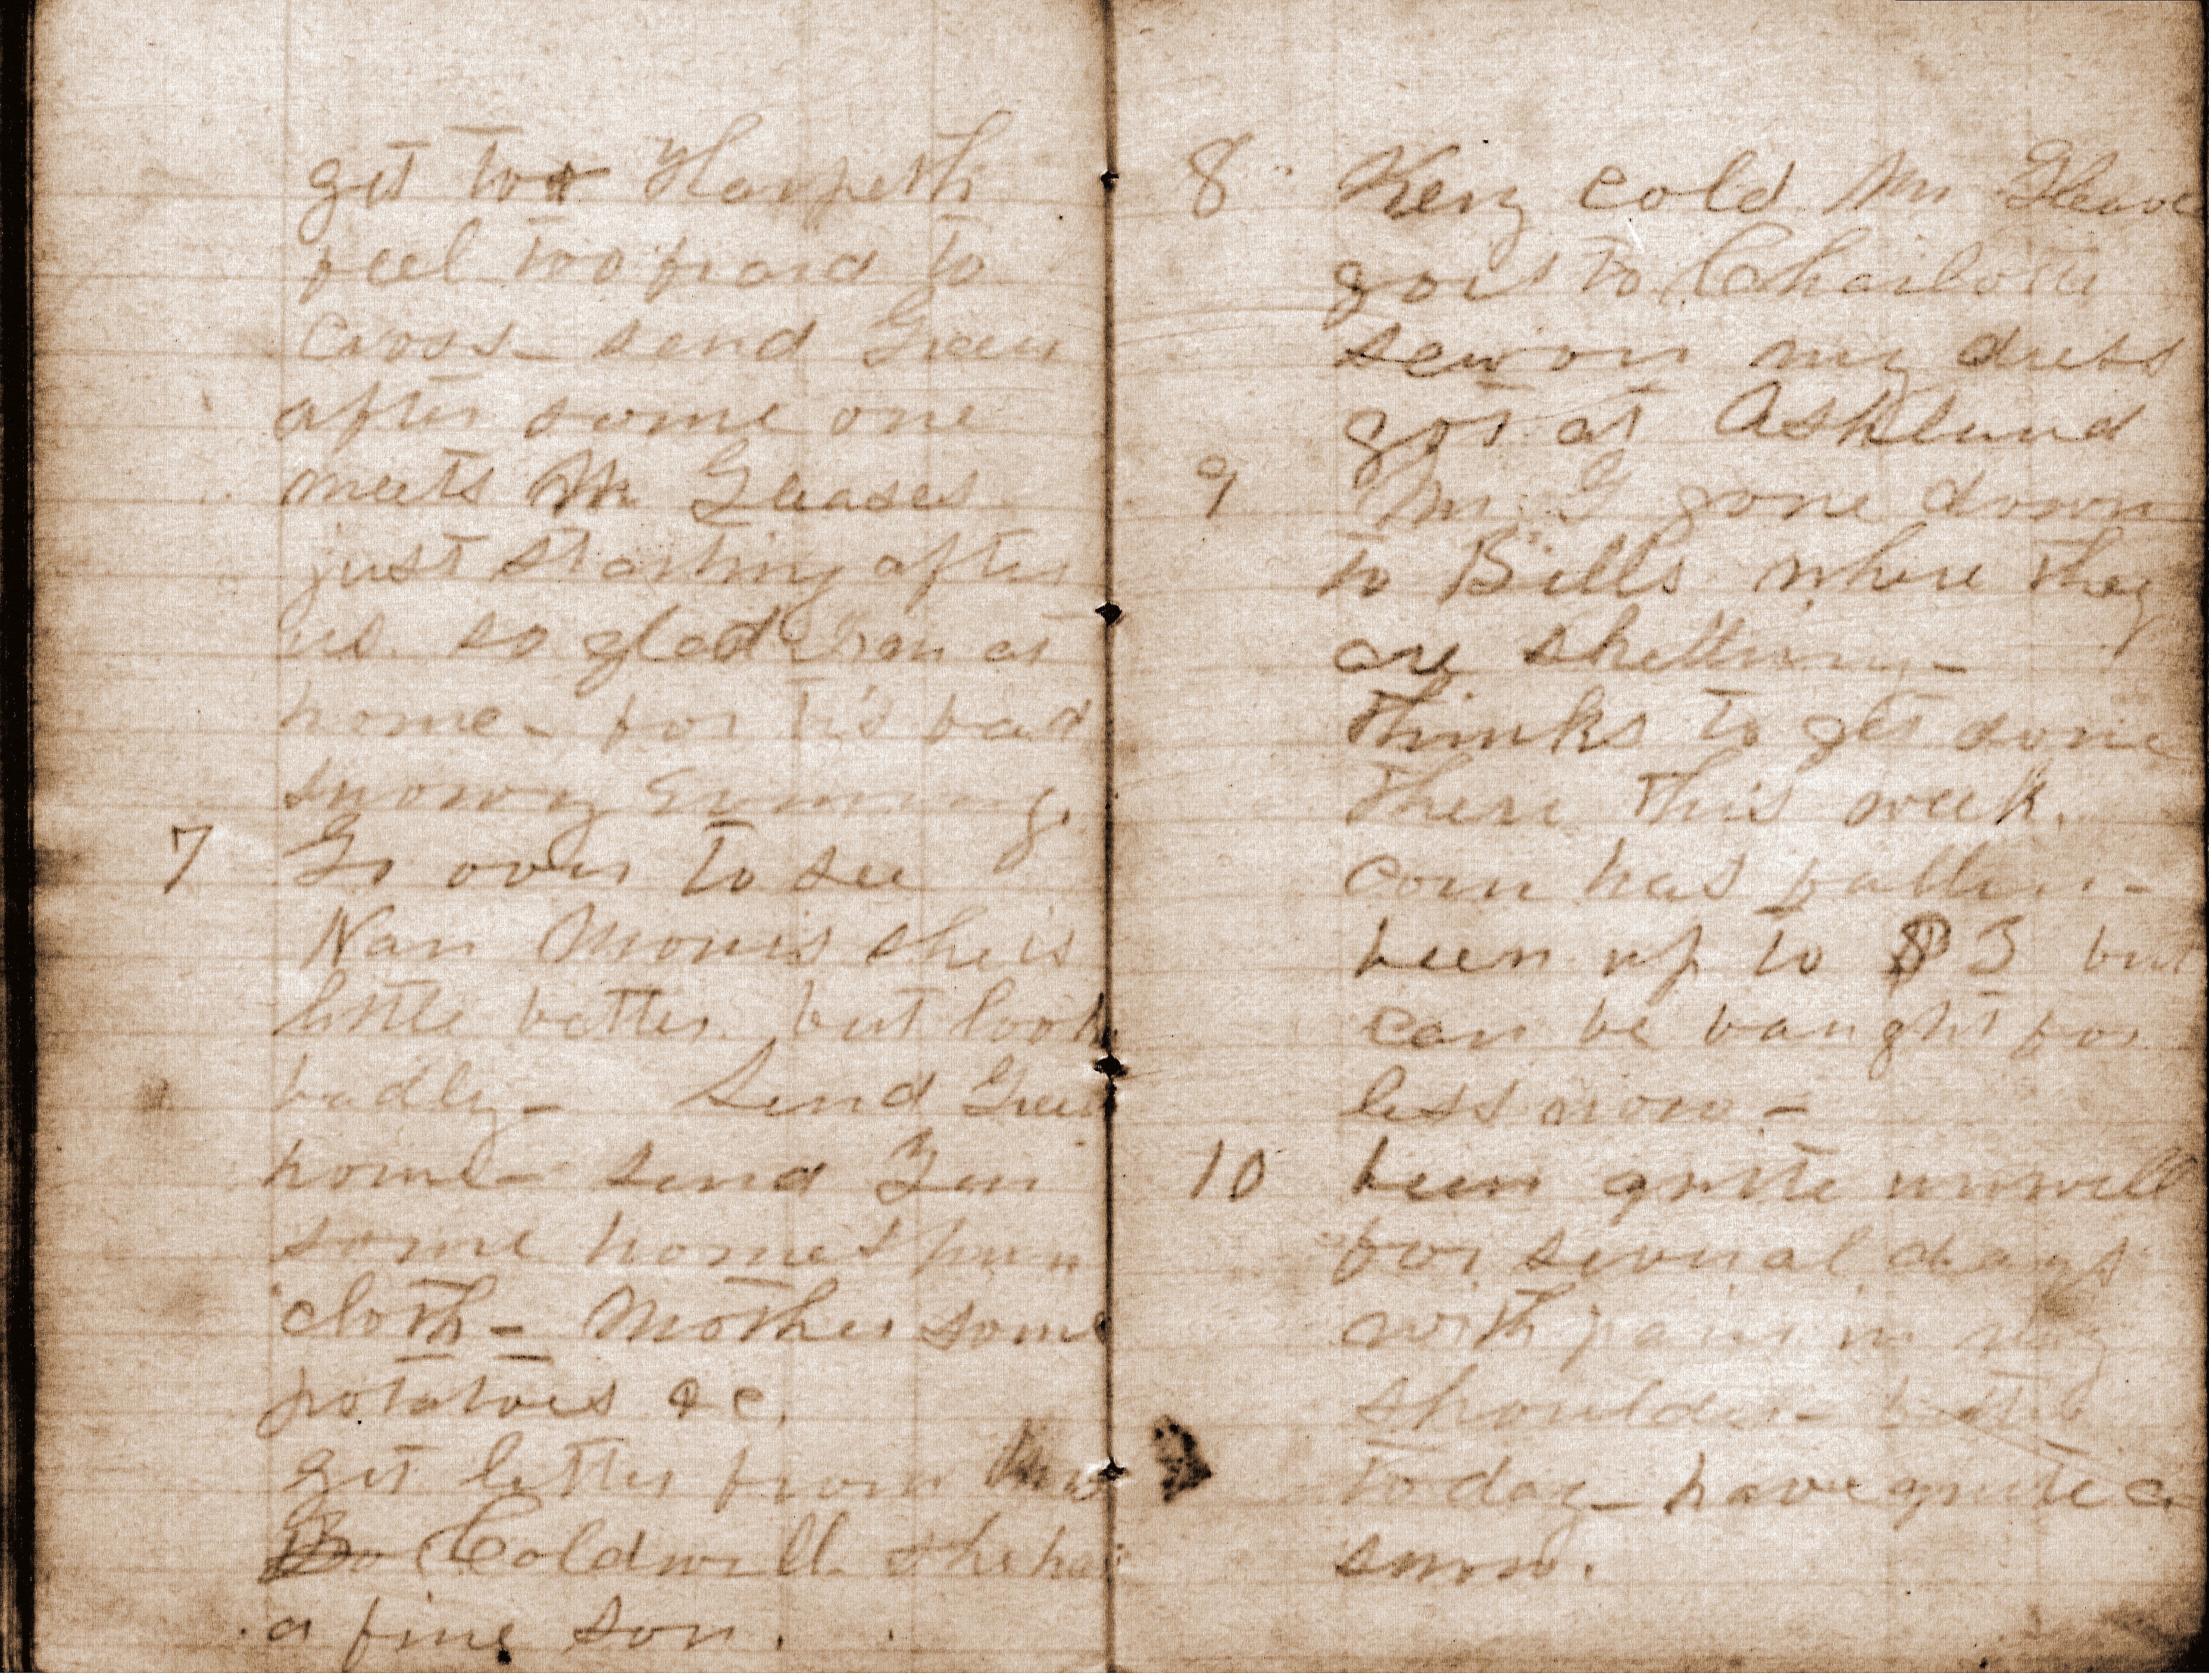 get to Harpeth
feel too fraid to
cross - send Green
after some one
meets Mr Gleaves
just starting after
us. so glad I am at
home - for tis bad
snowy evening.
7 Go over to see
Nan Morris she is
little better but look
badly - Send Green
home - send
some homespun
cloth - Mother some
potatoes &c.
get letter from Mrs
Coldwell. she has
a fine son.
8 Very cold Mr Gleaves
goes to Charlotte
sew on my dress
got at Ashland
9 Mr G gone down
to Bills where they
are shelling -
thinks to get done
there this week.
corn has fallen -
been up to $3 but
can be baught for
less now -
10 been quite unwell
for several days
with pain in my
shoulder -
today - have quite a
snow.